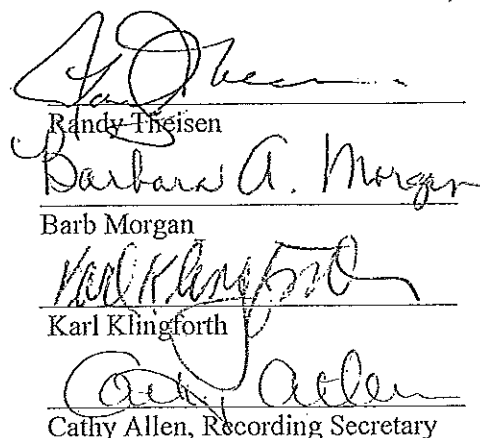 Randy Theisen
Barbara A. Morgan
Barb Morgan
Karl Klingforth
Karl Klingforth
Cathy Allen
Cathy Allen, Recording Secretary